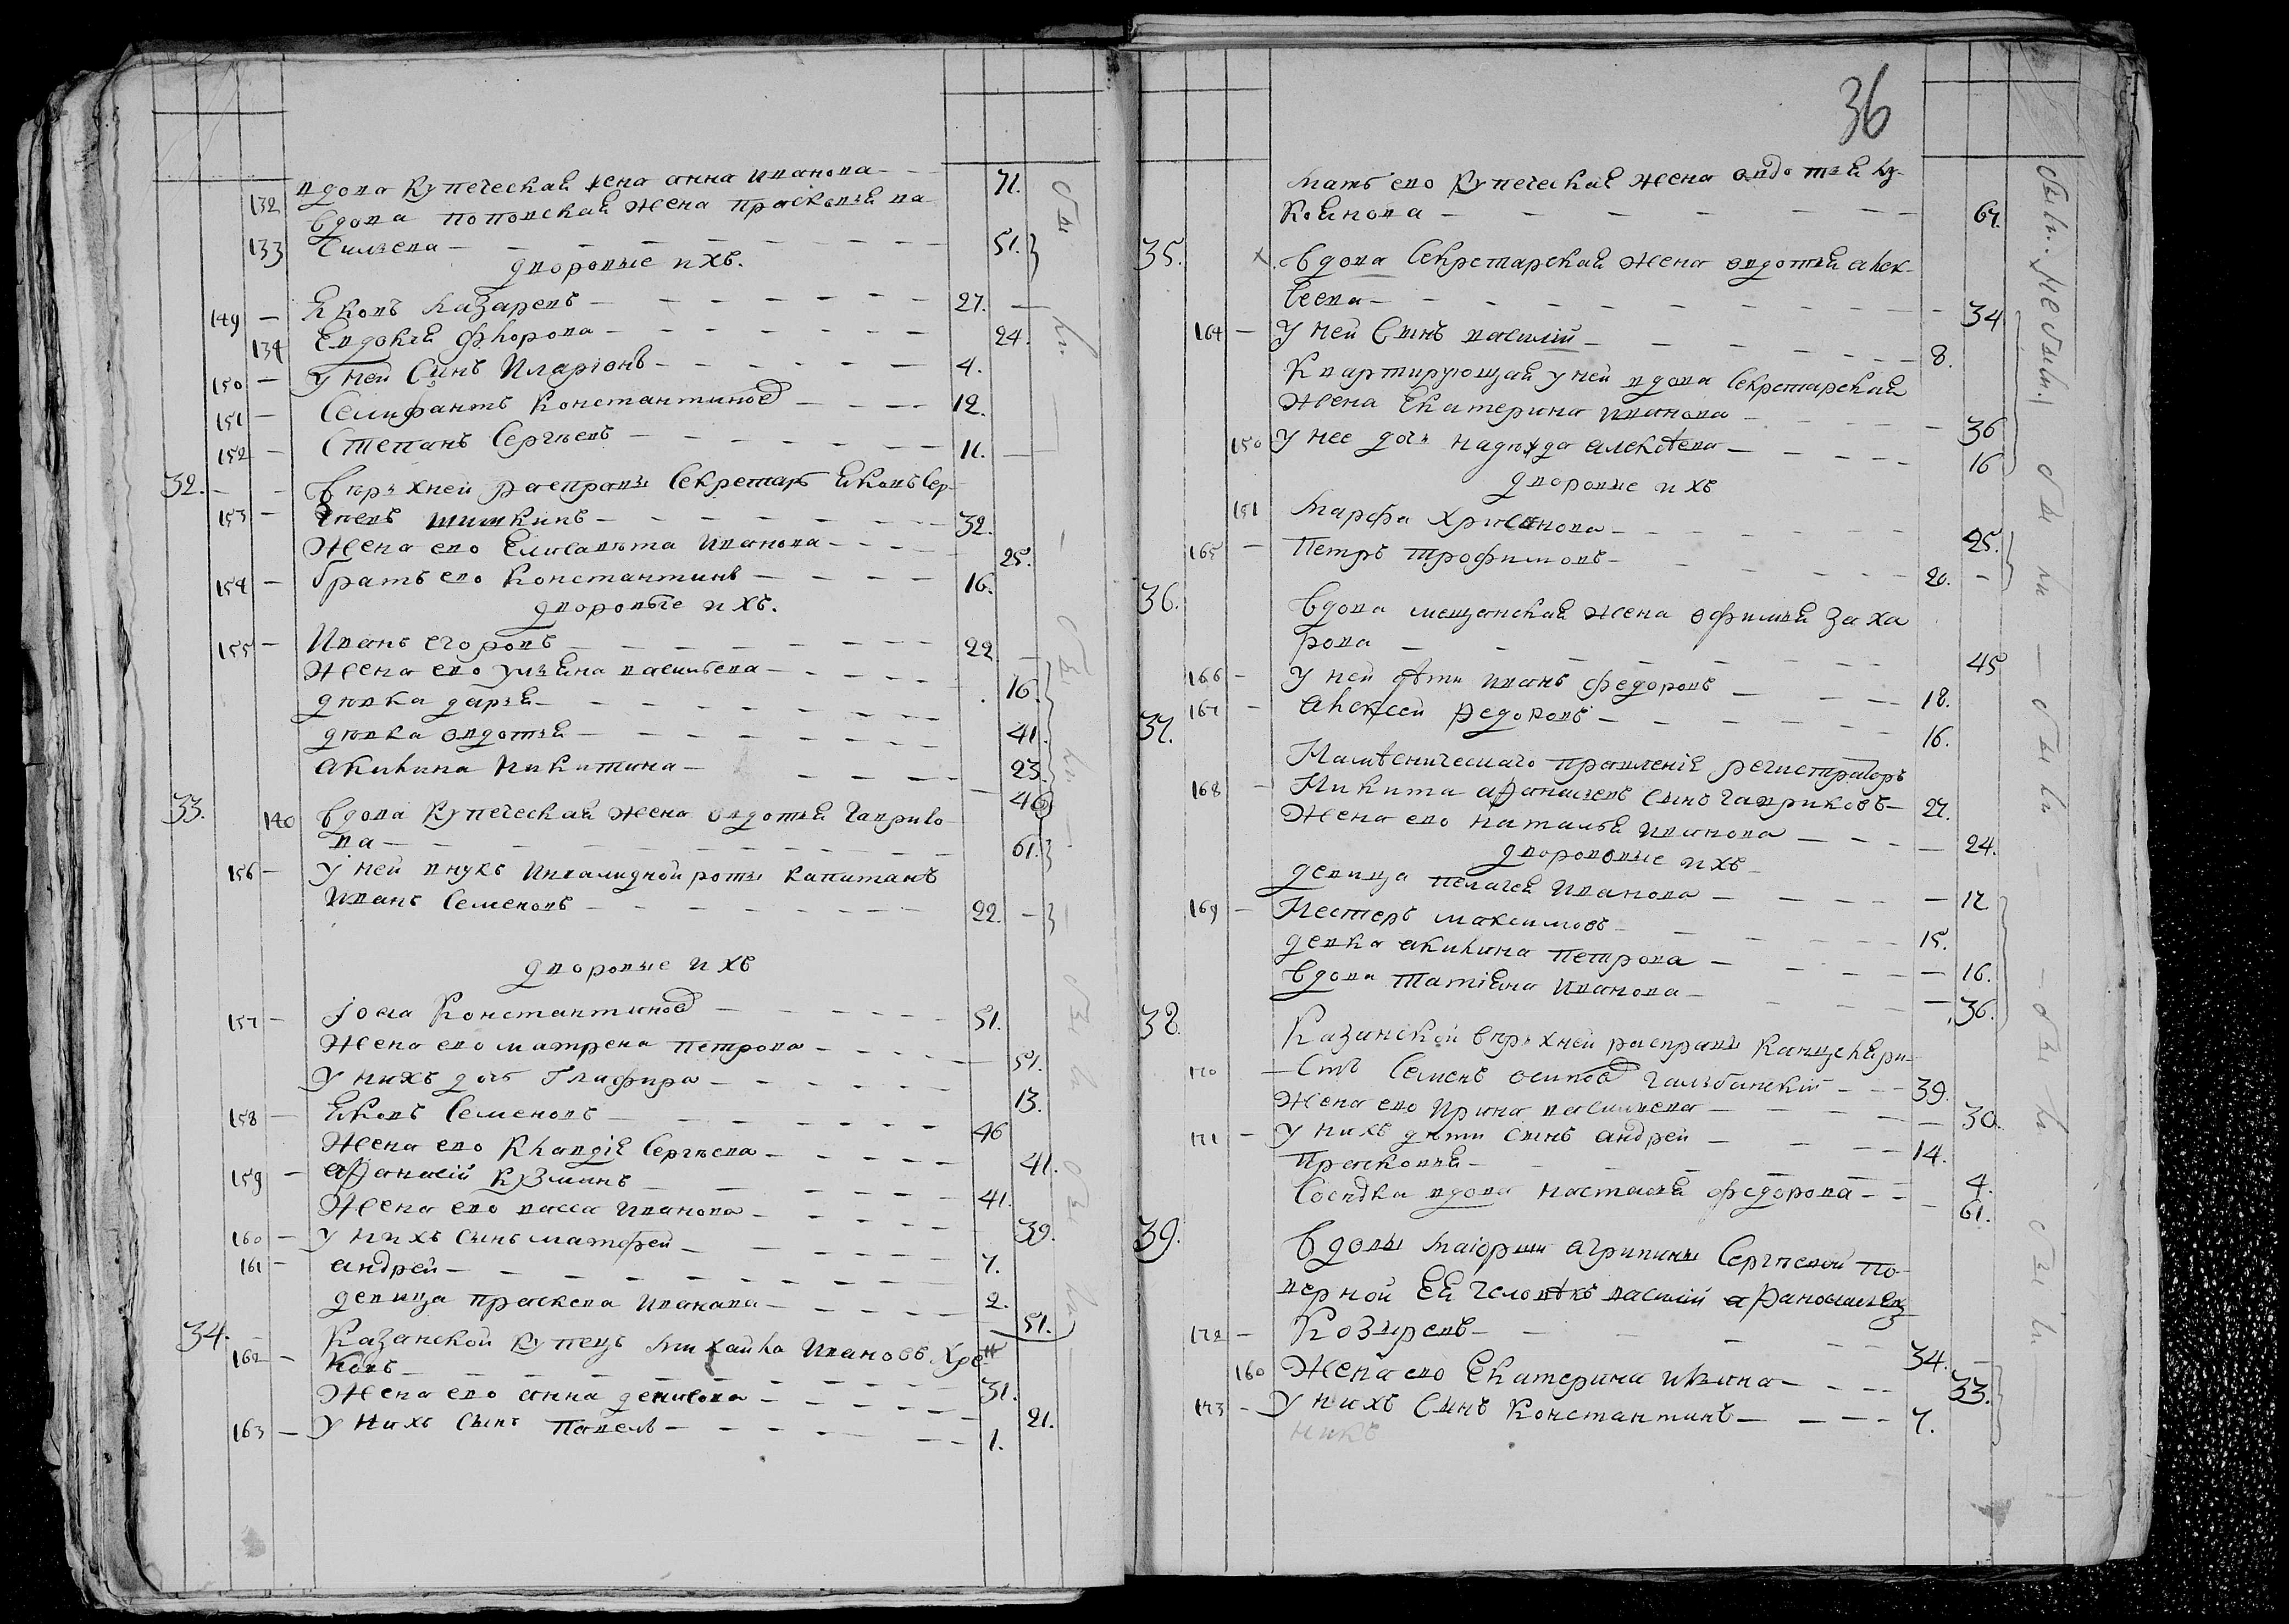 132 вдова купеческая жена анна иванова — 71.
вдова поповская жена прасковья ва
133 сильева — 51.
дворовые ихъ.
149 — Яковъ лазаревъ — 27. —
134 Евдокия флорова — 24.
150 — у ней Сынъ Иларіонъ — 4.
151 — Селифантъ Константиновъ — 12.
152 — Степанъ Сергѣевъ — 11. —
32. — Верхней расправы Секретарь Яковъ Сер
153 — гѣевъ шишкинъ — 32.
жена ево Елисавѣта Иванова — 25.
154 — братъ ево Константинъ — 16.
дворовые ихъ.
155 — Иванъ егоровъ — 22 —
жена ево ульяна васильева — 16.
дѣвка дарья — 41.
дѣвка овдотья — 23.
акилина Никитина — 46
33. 140 вдова купеческая жена овдотья Гаврило
ва — 61.
156 — у ней внукъ Инвалидной роты капитанъ
Иванъ Семеновъ — 22. —
дворовые ихъ
157 — Константиновъ — 51.
жена ево матрена петрова — 51.
у нихъ дочь Глафира — 13.
158 — Яковъ Семеновъ — 46
жена ево Клавдія Сергѣева — 41.
159 — афанасій Кузминъ — 41.
жена ево васса Иванова — 39.
160 — у нихъ сынъ матфей — 7.
161 — андрей — 2.
девица праскева Иванава — 51.
34. — Казанской купецъ михайла Ивановъ
162 — ковъ — 31.
жена ево анна денисова — 21.
163 — у нихъ сынъ павелъ — 1.
36
мать ево купеческая жена авдотья
Коинова — 67.
35. х. вдова Секретарская жена овдотья алек
сеева — 34
164 — у ней Сынъ василій — 8.
Квартирующая у ней вдова Секретарская
жена Екатерина иванова — 36
150 у нее дочь надѣжда алексѣева — 16
дворовые ихъ
151 марфа Хрисанова — 25.
165 — Петръ трофимовъ — 20. —
36. вдова мещанская жена офимья заха
рова — 45
166 — у ней дѣти иванъ федоровъ — 18.
167 — алексей федоровъ — 16.
37. правленія регистраторъ
168 — Никита афанасьевъ сынъ Гавриковъ — 27.
жена ево наталья Иванова — 24.
дворовые ихъ
девица пелагея Иванова — 17.
169 — Нестеръ максимовъ — 15.
девка акилина петрова — 16.
вдова татіяна Иванова — 36.
38. Казанской верхней расправы канцеляри
170 — стъ Семенъ осиповъ — 39.
жена ево Ирина васильева — 30.
171 — у нихъ дѣти сынъ андрей — 14.
прасковья — 4.
Соседка вдова настасья федорова — 61.
39. вдовы маіорши агрипины Сергѣевой по
верной Ея человѣкъ василій афанасьевъ
172 — Козыревъ — 34. —
160 жена ево Екатерина — 33.
173 — у нихъ Сынъ Константинъ — 7.